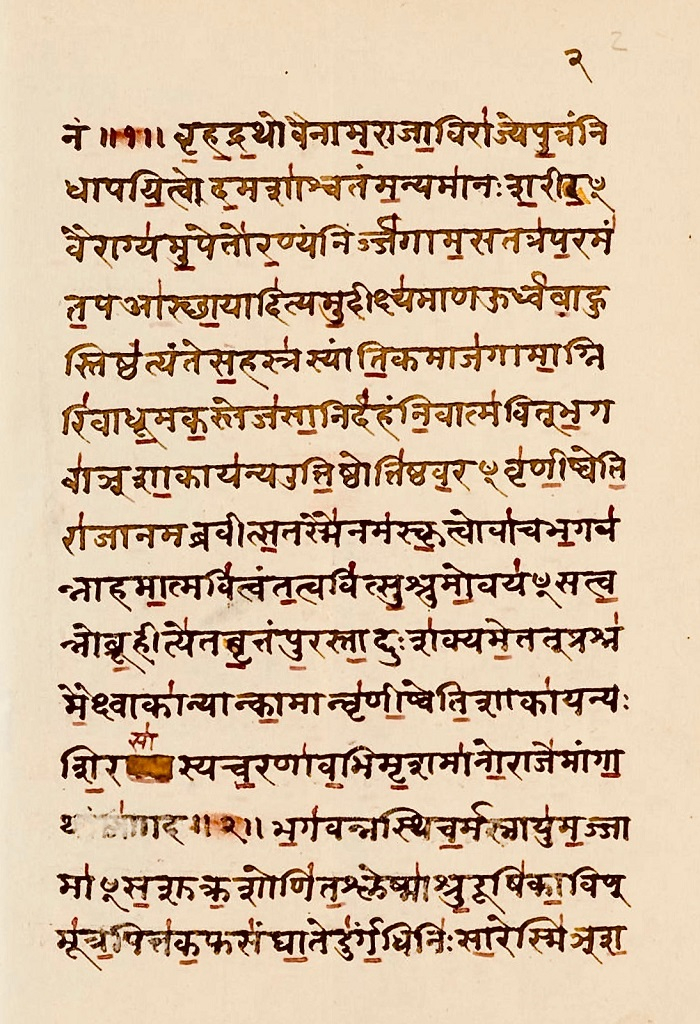 २
नं ॥१॥ वृहद्रथो वै नाम राजा विराज्ये पुत्रं नि
धापयित्वेदमशाश्वतं मन्यमानः शरीरꣳ
वैराग्यमुपेतोरण्यं निर्ज्जगाम स तत्र परमं
तप आस्छायादित्यमुदीक्ष्यमाण ऊर्ध्वबाहु
स्तिष्ठत्यंते सहस्रस्यांतिकमाजगामाग्नि
रिवाधूमकस्तेजसा निर्दहंनिवात्मवितूभग
वाञ्शाकायन्य उत्तिष्ठोत्तिष्ठ वरꣳ वृणीष्वेति
राजानमब्रवीत्स तस्मै नमस्कृत्वोवाच भगव
न्नाहमात्मवित्त्वं तत्ववित्सुश्रुमो वयꣳ स त्व
न्नो ब्रूहीत्येतद्वृत्तं पुरस्ताद्दुःशक्यमेतत्प्रश्न
मैक्ष्वाकान्यान्कामान्वृणीष्वेति शाकायन्यः
सा
शिरस्य चरणावभिमृशमानो राजेमां गा
जगाह ॥२॥ भगवन्नस्थिचर्मस्नायुमज्जा
माꣳसशुक्रशोणितश्लेष्माश्रुदूषिकाविण्
मूत्रपित्तकफसंघाते दुर्गंधि निःसारेस्मिञ्श